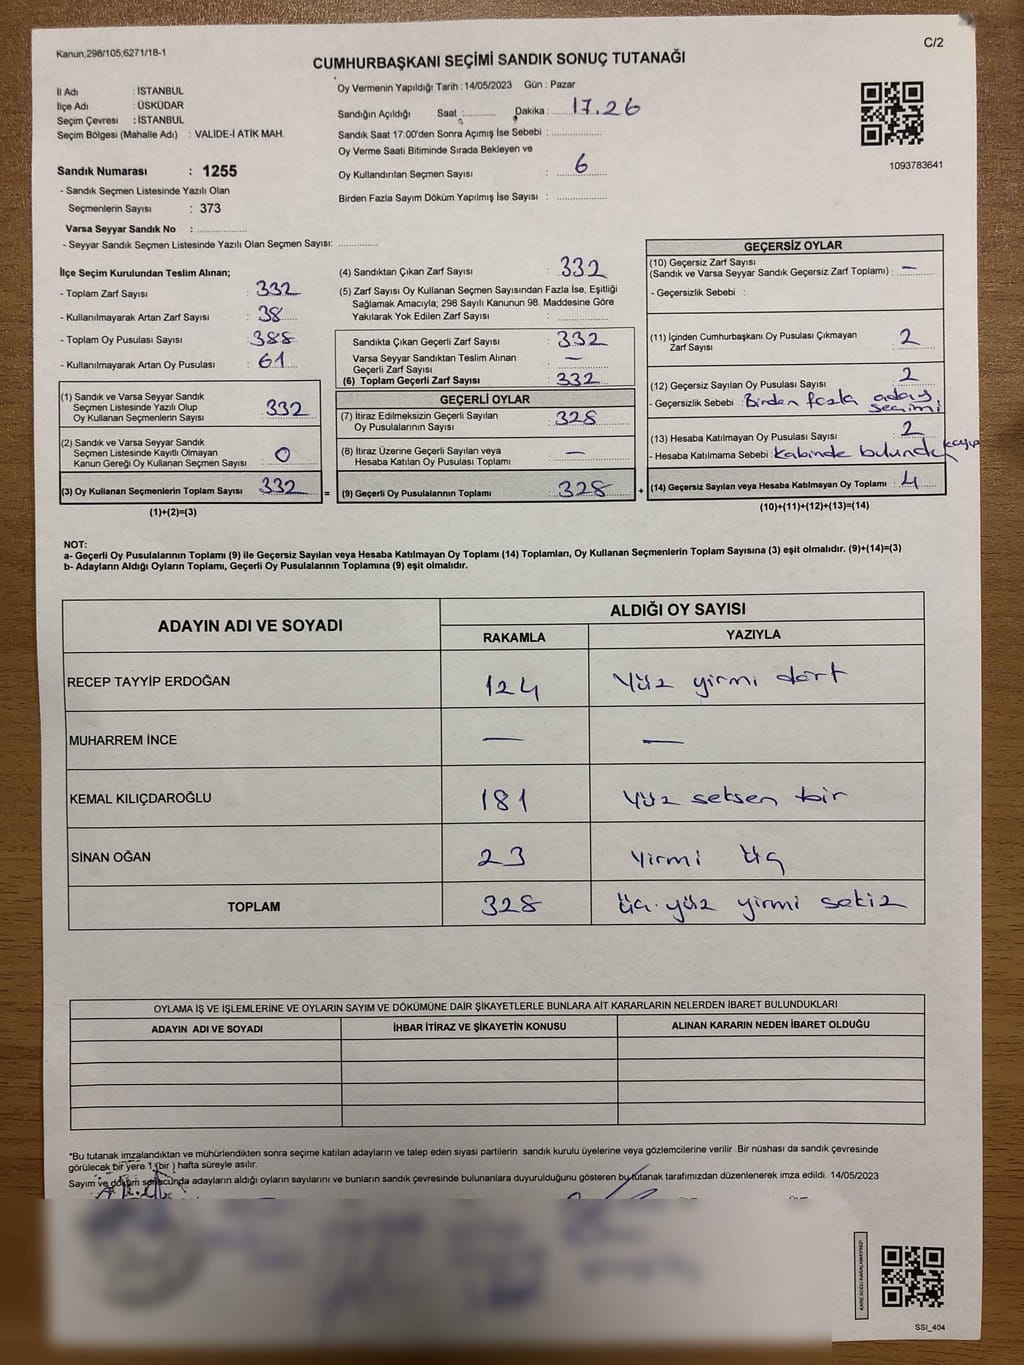 Kanun,298/105,6271/18-1
C/2
CUMHURBAŞKANI SEÇİMİ SANDIK SONUÇ TUTANAĞI
İl Adı : İSTANBUL
İlçe Adı : ÜSKÜDAR
Seçim Çevresi : İSTANBUL
Seçim Bölgesi (Mahalle Adı) : VALİDE-İ ATİK MAH.
Sandık Numarası : 1255
- Sandık Seçmen Listesinde Yazılı Olan
Seçmenlerin Sayısı : 373
Varsa Seyyar Sandık No : ..............
- Seyyar Sandık Seçmen Listesinde Yazılı Olan Seçmen Sayısı: ............
Oy Vermenin Yapıldığı Tarih : 14/05/2023 Gün : Pazar
Sandığın Açıldığı Saat :.......... Dakika : 17.26
Sandık Saat 17:00'den Sonra Açımış İse Sebebi : ..............
Oy Verme Saati Bitiminde Sırada Bekleyen ve
Oy Kullandırılan Seçmen Sayısı : 6
Birden Fazla Sayım Döküm Yapılmış İse Sayısı : ..............
1093783641
İlçe Seçim Kurulundan Teslim Alınan;
- Toplam Zarf Sayısı : 332
- Kullanılmayarak Artan Zarf Sayısı : 38
- Toplam Oy Pusulası Sayısı : 388
- Kullanılmayarak Artan Oy Pusulası : 61
(1) Sandık ve Varsa Seyyar Sandık
Seçmen Listesinde Yazılı Olup
Oy Kullanan Seçmenlerin Sayısı : 332
(2) Sandık ve Varsa Seyyar Sandık
Seçmen Listesinde Kayıtlı Olmayan
Kanun Gereği Oy Kullanan Seçmen Sayısı : 0
(3) Oy Kullanan Seçmenlerin Toplam Sayısı : 332 =
(1)+(2)=(3)
(4) Sandıktan Çıkan Zarf Sayısı : 332
(5) Zarf Sayısı Oy Kullanan Seçmen Sayısından Fazla İse, Eşitliği
Sağlamak Amacıyla; 298 Sayılı Kanunun 98. Maddesine Göre
Yakılarak Yok Edilen Zarf Sayısı : ..............
Sandıkta Çıkan Geçerli Zarf Sayısı : 332
Varsa Seyyar Sandıktan Teslim Alınan
Geçerli Zarf Sayısı : —
(6) Toplam Geçerli Zarf Sayısı : 332
GEÇERLİ OYLAR
(7) İtiraz Edilmeksizin Geçerli Sayılan
Oy Pusulalarının Sayısı : 328
(8) İtiraz Üzerine Geçerli Sayılan veya
Hesaba Katılan Oy Pusulası Toplamı : —
(9) Geçerli Oy Pusulalarının Toplamı : 328 +
GEÇERSİZ OYLAR
(10) Geçersiz Zarf Sayısı
(Sandık ve Varsa Seyyar Sandık Geçersiz Zarf Toplamı) : —
- Geçersizlik Sebebi :
(11) İçinden Cumhurbaşkanı Oy Pusulası Çıkmayan
Zarf Sayısı : 2
(12) Geçersiz Sayılan Oy Pusulası Sayısı : 2
- Geçersizlik Sebebi : Birden fazla aday
seçimi
(13) Hesaba Katılmayan Oy Pusulası Sayısı : 2
- Hesaba Katılmama Sebebi : Kabinde bulundu kayıp
(14) Geçersiz Sayılan veya Hesaba Katılmayan Oy Toplamı : 4
(10)+(11)+(12)+(13)=(14)
NOT:
a- Geçerli Oy Pusulalarının Toplamı (9) ile Geçersiz Sayılan veya Hesaba Katılmayan Oy Toplamı (14) Toplamları, Oy Kullanan Seçmenlerin Toplam Sayısına (3) eşit olmalıdır. (9)+(14)=(3)
b- Adayların Aldığı Oyların Toplamı, Geçerli Oy Pusulalarının Toplamına (9) eşit olmalıdır.
ADAYIN ADI VE SOYADI
ALDIĞI OY SAYISI
RAKAMLA YAZIYLA
RECEP TAYYİP ERDOĞAN 124 Yüz yirmi dört
MUHARREM İNCE — —
KEMAL KILIÇDAROĞLU 181 Yüz seksen bir
SİNAN OĞAN 23 Yirmi üç
TOPLAM 328 üç yüz yirmi sekiz
OYLAMA İŞ VE İŞLEMLERİNE VE OYLARIN SAYIM VE DÖKÜMÜNE DAİR ŞİKAYETLERLE BUNLARA AİT KARARLARIN NELERDEN İBARET BULUNDUKLARI
ADAYIN ADI VE SOYADI İHBAR İTİRAZ VE ŞİKAYETİN KONUSU ALINAN KARARIN NEDEN İBARET OLDUĞU
*Bu tutanak imzalandıktan ve mühürlendikten sonra seçime katılan adayların ve talep eden siyasi partilerin sandık kurulu üyelerine veya gözlemcilerine verilir .Bir nüshası da sandık çevresinde
görülecek bir yere 1 (bir ) hafta süreyle asılır.
Sayım ve döküm sonucunda adayların aldığı oyların sayılarını ve bunların sandık çevresinde bulunanlara duyurulduğunu gösteren bu tutanak tarafımızdan düzenlenerek imza edildi. 14/05/2023
KARE KODU KARALAMAYINIZ!
SSİ_404